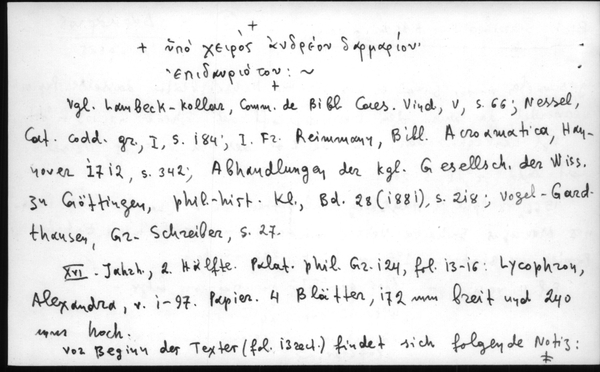 +
+ ὑπὸ χειρὸς ἀνδρέου δαρμαρίου·
ἐπιδαυριότου : ~
+
Vgl. Lambeck-Kollar, Comm. de Bibl. Caes. Vind, V, S. 66; Nessel,
Cat. codd. gr, I, S. 184; I. Fr. Reimmany, Bibl. Acroamatica, Han-
nover 1712, S. 342; Abhandlungen der kgl. Gesellsch. der Wiss.
zu Göttingen, phil-hist. Kl., Bd. 28 (1881), S. 218; Vogel-Gard-
thausen, Gr. Schreiber, S. 27.
XVI. Jahrh., 2. Hälfte. Palat. phil. Gr. 124, fol. 13-16: Lycophron,
Alexandra, v. 1-97. Papier. 4 Blätter, 172 mm breit und 240
mm hoch.
Vor Beginn des Textes (fol. 13 rect.) findet sich folgende Notiz:
*